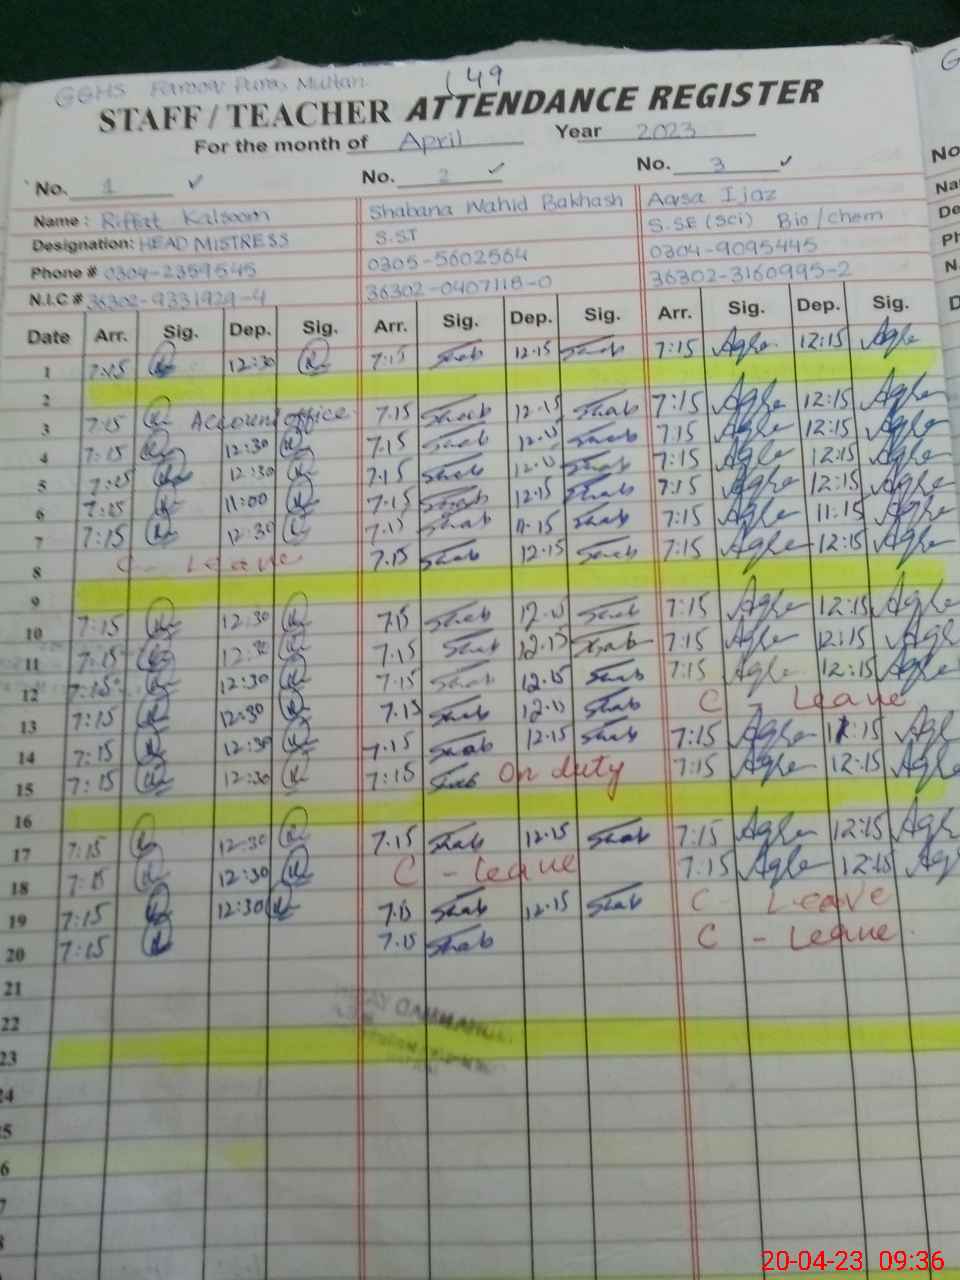 GGHS Farooq Pura, Multan
149
STAFF / TEACHER ATTENDANCE REGISTER
For the month of April Year 2023
No. 1 ✓ No. 2 ✓ No. 3 ✓
Name : Riffat Kalsoom Shabana Wahid Bakhash Aqsa Ijaz
Designation: HEAD MISTRESS S.ST S.SE (Sci) Bio/chem
Phone # 0304-2359545 0305-5602564 0304-9095445
N.I.C # 36302-9331929-4 36302-0407118-0 36302-3160995-2
Date Arr. Sig. Dep. Sig. Arr. Sig. Dep. Sig. Arr. Sig. Dep. Sig.
1 7:15 12:30 7:15 Shab 12:15 Shab 7:15 12:15
2
3 7:15 Account office 7.15 Shab 12.15 Shab 7:15 12:15
4 7:15 12:30 7.15 Shab 12.15 Shab 7:15 12:15
5 7:15 12:30 7.15 Shab 12.15 Shab 7:15 12:15
6 7:15 11:00 7.15 Shab 12.15 Shab 7:15 12:15
7 7:15 12:30 7.15 Shab 11.15 Shab 7:15 11:15
8 C - Leave 7.15 Shab 12.15 Shab 7:15 12:15
9
10 7:15 12:30 7.15 Shab 12.15 Shab 7:15 12:15
11 7:15 12:30 7.15 Shab 12.15 Shab 7:15 12:15
12 7:15 12:30 7.15 Shab 12.15 Shab 7:15 12:15
13 7:15 12:30 7.15 Shab 12.15 Shab C - Leave
14 7:15 12:30 7.15 Shab 12.15 Shab 7:15 :15
15 7:15 12:30 7:15 Shab On duty 7:15 12:15
16
17 7:15 12:30 7.15 Shab 12.15 Shab 7:15 12:15
18 7:15 12:30 C - Leave 7:15 12:15
19 7:15 12:30 7.15 Shab 12.15 Shab C - Leave
20 7:15 7.15 Shab C - Leave.
21
22
23
24
5
6
7
8
20-04-23 09:36